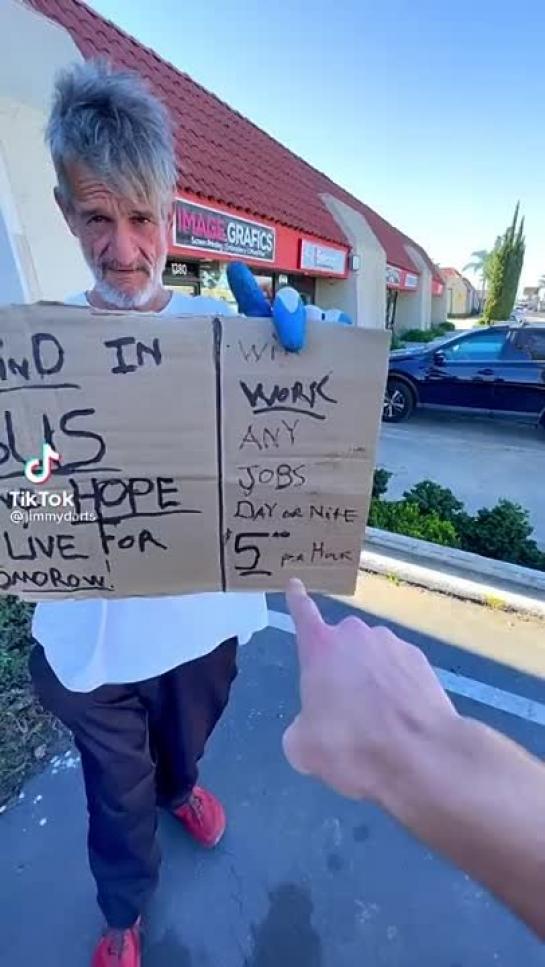 IMAGE GRAFICS
1380
IND IN
US
HOPE
LIVE FOR
OMOROW!
WORK
ANY
JOBS
DAY OR NITE
$5 PER HOUR
TikTok
@jimmydarts